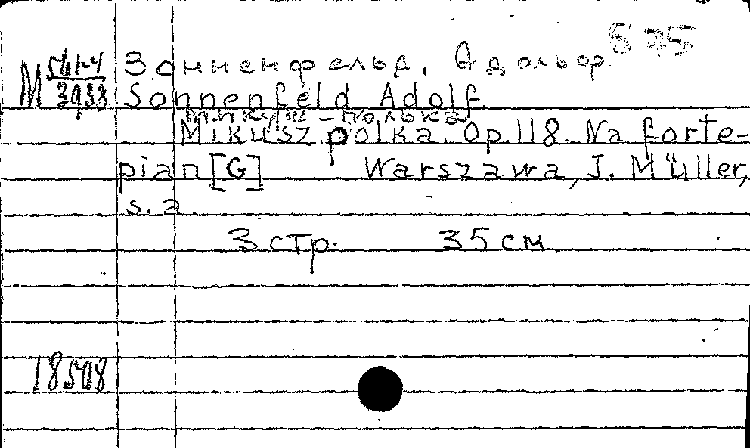 Зонненфельд, Адольф.
Sonnenfeld Adolf.
Микуш-полька
Mikusz polka. Op. 118. Na forte-
pian [G] Warszawa, J. Müller,
s. a.
3 стр. 35 см